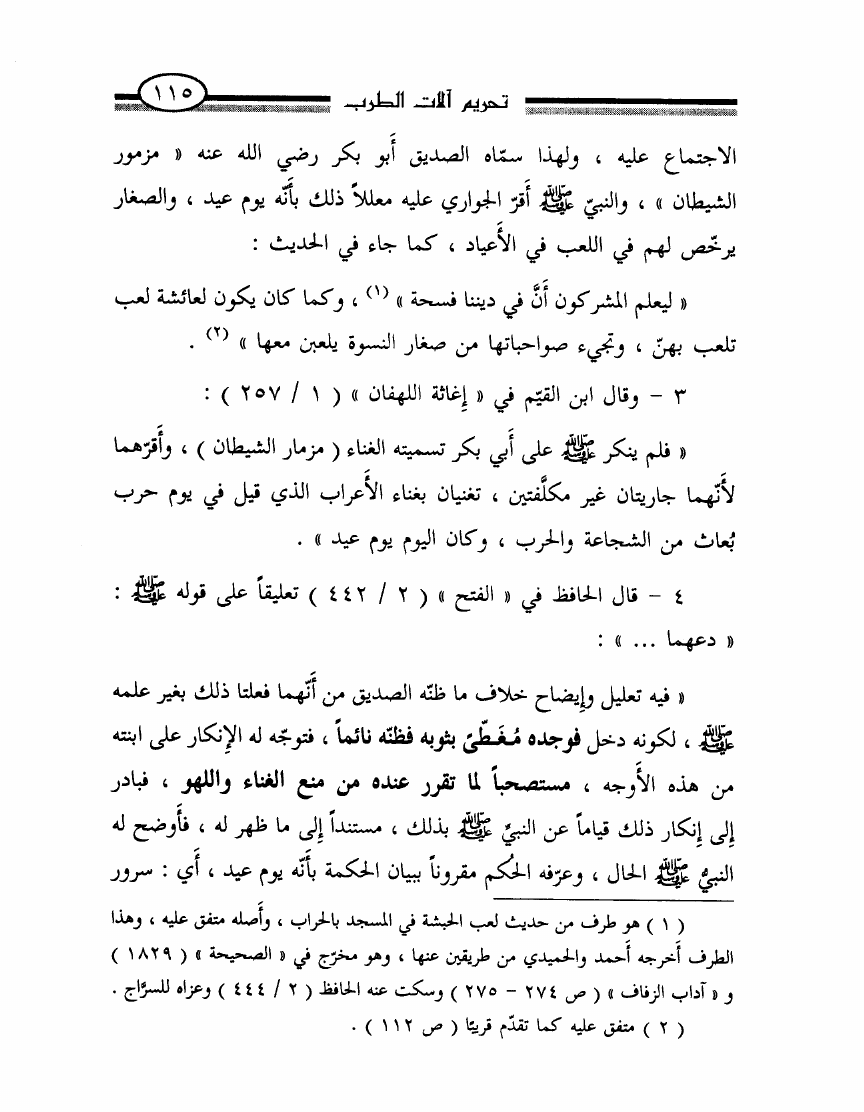 تحريم آلات الطرب ١١٥
الاجتماع عليه ، ولهذا سمّاه الصديق أَبو بكر رضي الله عنه « مزمور
الشيطان » ، والنبيّ ﷺ أَقرّ الجواري عليه معللاً ذلك بأَنّه يوم عيد ، والصغار
يرخّص لهم في اللعب في الأَعياد ، كما جاء في الحديث :
« ليعلم المشركون أَنَّ في ديننا فسحة » (١) ، وكما كان يكون لعائشة لعب
تلعب بهنّ ، وتجيء صواحباتها من صغار النسوة يلعبن معها » (٢) .
٣ - وقال ابن القيّم في « إِغاثة اللهفان » ( ١ / ٢٥٧ ) :
« فلم ينكر ﷺ على أَبي بكر تسميته الغناء ( مزمار الشيطان ) ، وأَقرّهما
لأَنّهما جاريتان غير مكلَّفتين ، تغنيان بغناء الأَعراب الذي قيل في يوم حرب
بُعاث من الشجاعة والحرب ، وكان اليوم يوم عيد » .
٤ - قال الحافظ في « الفتح » ( ٢ / ٤٤٢ ) تعليقاً على قوله ﷺ :
« دعهما ... » :
« فيه تعليل وإِيضاح خلاف ما ظنّه الصديق من أَنّهما فعلتا ذلك بغير علمه
ﷺ ، لكونه دخل فوجده مُغَطّىً بثوبه فظنّه نائماً ، فتوجّه له الإِنكار على ابنته
من هذه الأَوجه ، مستصحباً لما تقرر عنده من منع الغناء واللهو ، فبادر
إِلى إِنكار ذلك قياماً عن النبيِّ ﷺ بذلك ، مستنداً إِلى ما ظهر له ، فأَوضح له
النبيُّ ﷺ الحال ، وعرّفه الحُكم مقروناً ببيان الحكمة بأَنّه يوم عيد ، أَي : سرور
( ١ ) هو طرف من حديث لعب الحبشة في المسجد بالحراب ، وأَصله متفق عليه ، وهذا
الطرف أَخرجه أَحمد والحميدي من طريقين عنها ، وهو مخرّج في « الصحيحة » ( ١٨٢٩ )
و « آداب الزفاف » ( ص ٢٧٤ - ٢٧٥ ) وسكت عنه الحافظ ( ٢ / ٤٤٤ ) وعزاه للسرَّاج .
( ٢ ) متفق عليه كما تقدّم قريبًا ( ص ١١٢ ) .